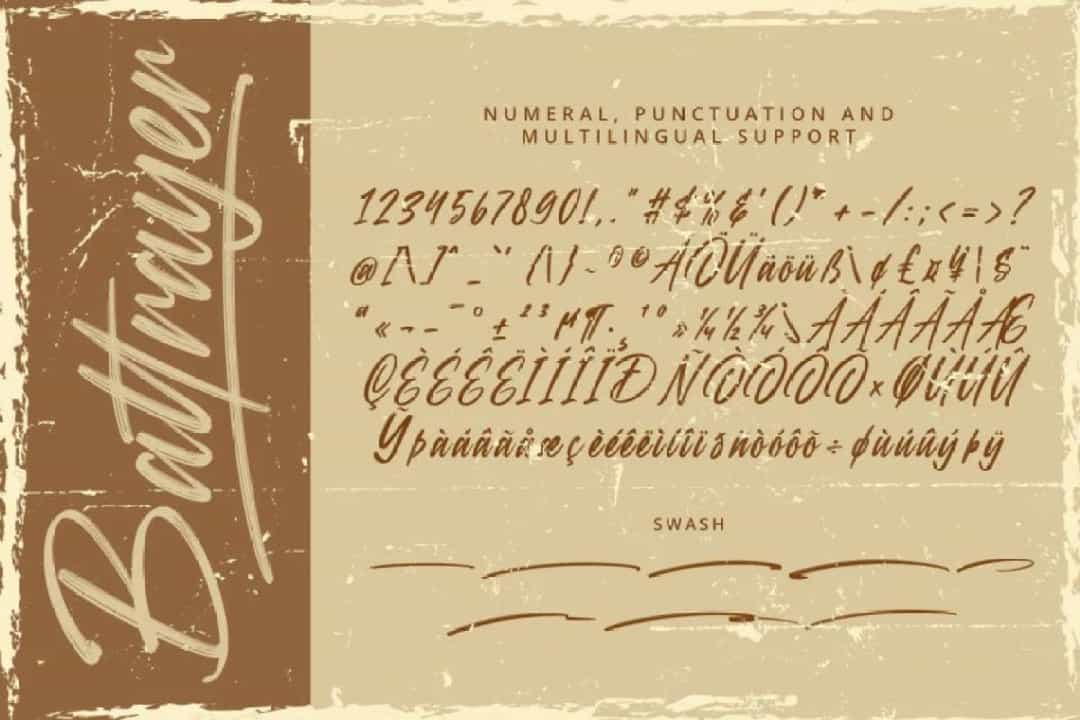 Battrayen
NUMERAL, PUNCTUATION AND
MULTILINGUAL SUPPORT
1234567890!,."#$%&'()*+-/:;<=>?
@[\]^_`{|}~©®ÄÖÜäöüß\¢£¤¥¦§¨
ª«¬-¯°±²³µ¶·¸¹º»¼½¾\ÀÁÂÃÄÅÆ
ÇÈÉÊËÌÍÎÏÐÑÒÓÔÕ×ØÙÚÛ
Ýþàáâãåæçèéêëìíîïðñòóôõ÷øùúûýþÿ
SWASH